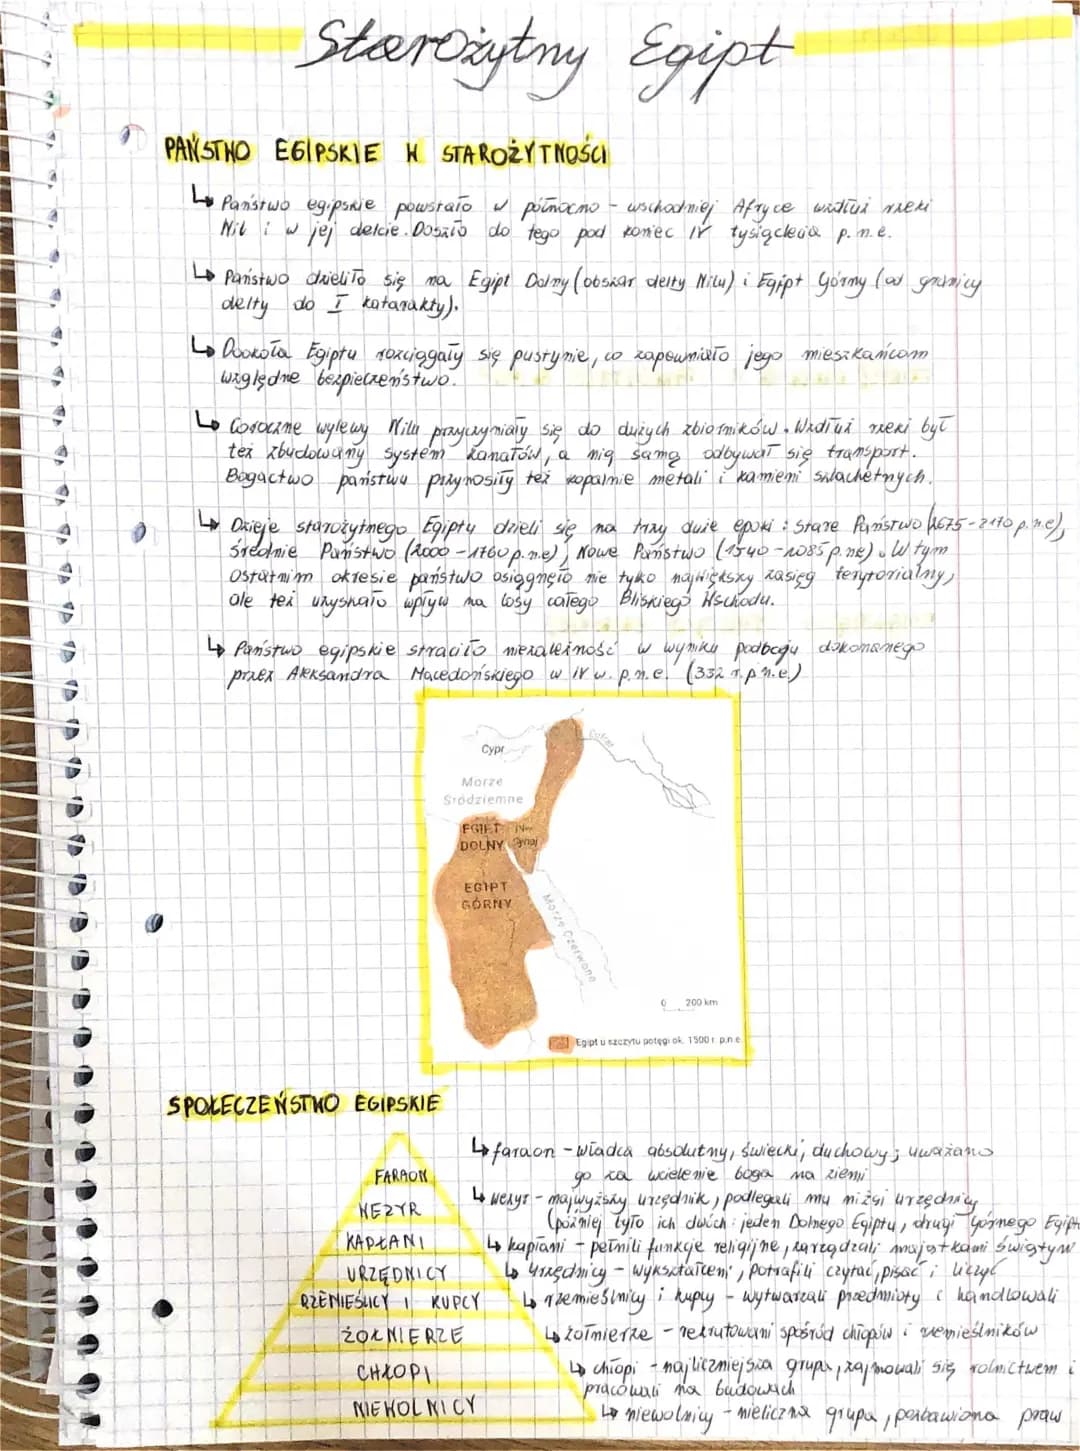 Starożytny Egipt
PAŃSTWO EGIPSKIE W STAROŻYTNOŚCI
↳ Państwo egipskie powstało w północno - wschodniej Afryce wzdłuż rzeki
Nil i w jej delcie. Doszło do tego pod koniec IV tysiąclecia p.n.e.
↳ Państwo dzieliło się na Egipt Dolny (obszar delty Nilu) i Egipt Górny (od granicy
delty do I katarakty).
↳ Dookoła Egiptu rozciągały się pustynie, co zapewniało jego mieszkańcom
względne bezpieczeństwo.
↳ Coroczne wylewy Nilu przyczyniały się do dużych zbiorników. Wzdłuż rzeki był
też zbudowany system kanałów, a nią samą odbywał się transport.
Bogactwo państwu przynosiły też kopalnie metali i kamieni szlachetnych.
↳ Dzieje starożytnego Egiptu dzieli się na trzy duże epoki: Stare Państwo (2675-2170 p.n.e),
Średnie Państwo (2000-1760 p.n.e), Nowe Państwo (1540-1085 p.ne). W tym
ostatnim okresie państwo osiągnęło nie tylko największy zasięg terytorialny,
ale też uzyskało wpływ na losy całego Bliskiego Wschodu.
↳ Państwo egipskie straciło niezależność w wyniku podboju dokonanego
przez Aleksandra Macedońskiego w IV w. p.n.e. (332 r.p.n.e.)
Cypr
Eufrat
Morze
Śródziemne
EGIPT
DOLNY
Synaj
EGIPT
GÓRNY
Morze Czerwone
0 200 km
Egipt u szczytu potęgi ok. 1500 r. p.n.e.
SPOŁECZEŃSTWO EGIPSKIE
FARAON
WEZYR
KAPŁANI
URZĘDNICY
RZEMIEŚLICY I KUPCY
ŻOŁNIERZE
CHŁOPI
NIEWOLNICY
↳ faraon - władca absolutny, świecki, duchowy; uważano
go za wcielenie boga na ziemi
↳ wezyr - najwyższy urzędnik, podlegali mu niżsi urzędnicy
(później było ich dwóch: jeden Dolnego Egiptu, drugi Górnego
↳ kapłani - pełnili funkcje religijne, zarządzali majątkami świątyń
↳ urzędnicy - wykształceni, potrafili czytać, pisać i liczyć
↳ rzemieślnicy i kupcy - wytwarzali przedmioty i handlowali
↳ żołnierze - rekrutowani spośród chłopów i rzemieślników
↳ chłopi - najliczniejsza grupa, zajmowali się rolnictwem i
pracowali na budowach
↳ niewolnicy - nieliczna grupa, pozbawiona praw